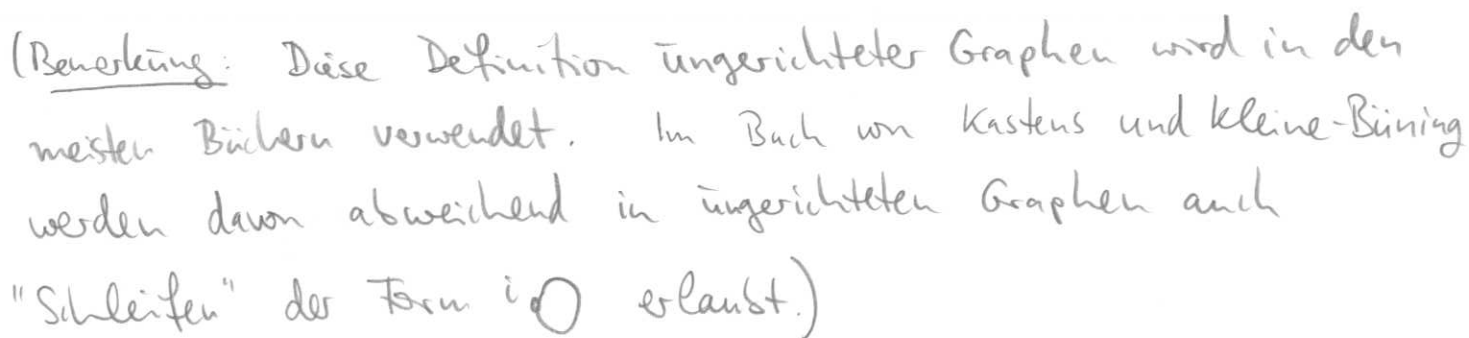 (Bemerkung: Diese Definition ungerichteter Graphen wird in den
meisten Büchern verwendet. Im Buch von Kastens und Kleine-Büning
werden davon abweichend in ungerichteten Graphen auch
"Schleifen" der Form i erlaubt.)